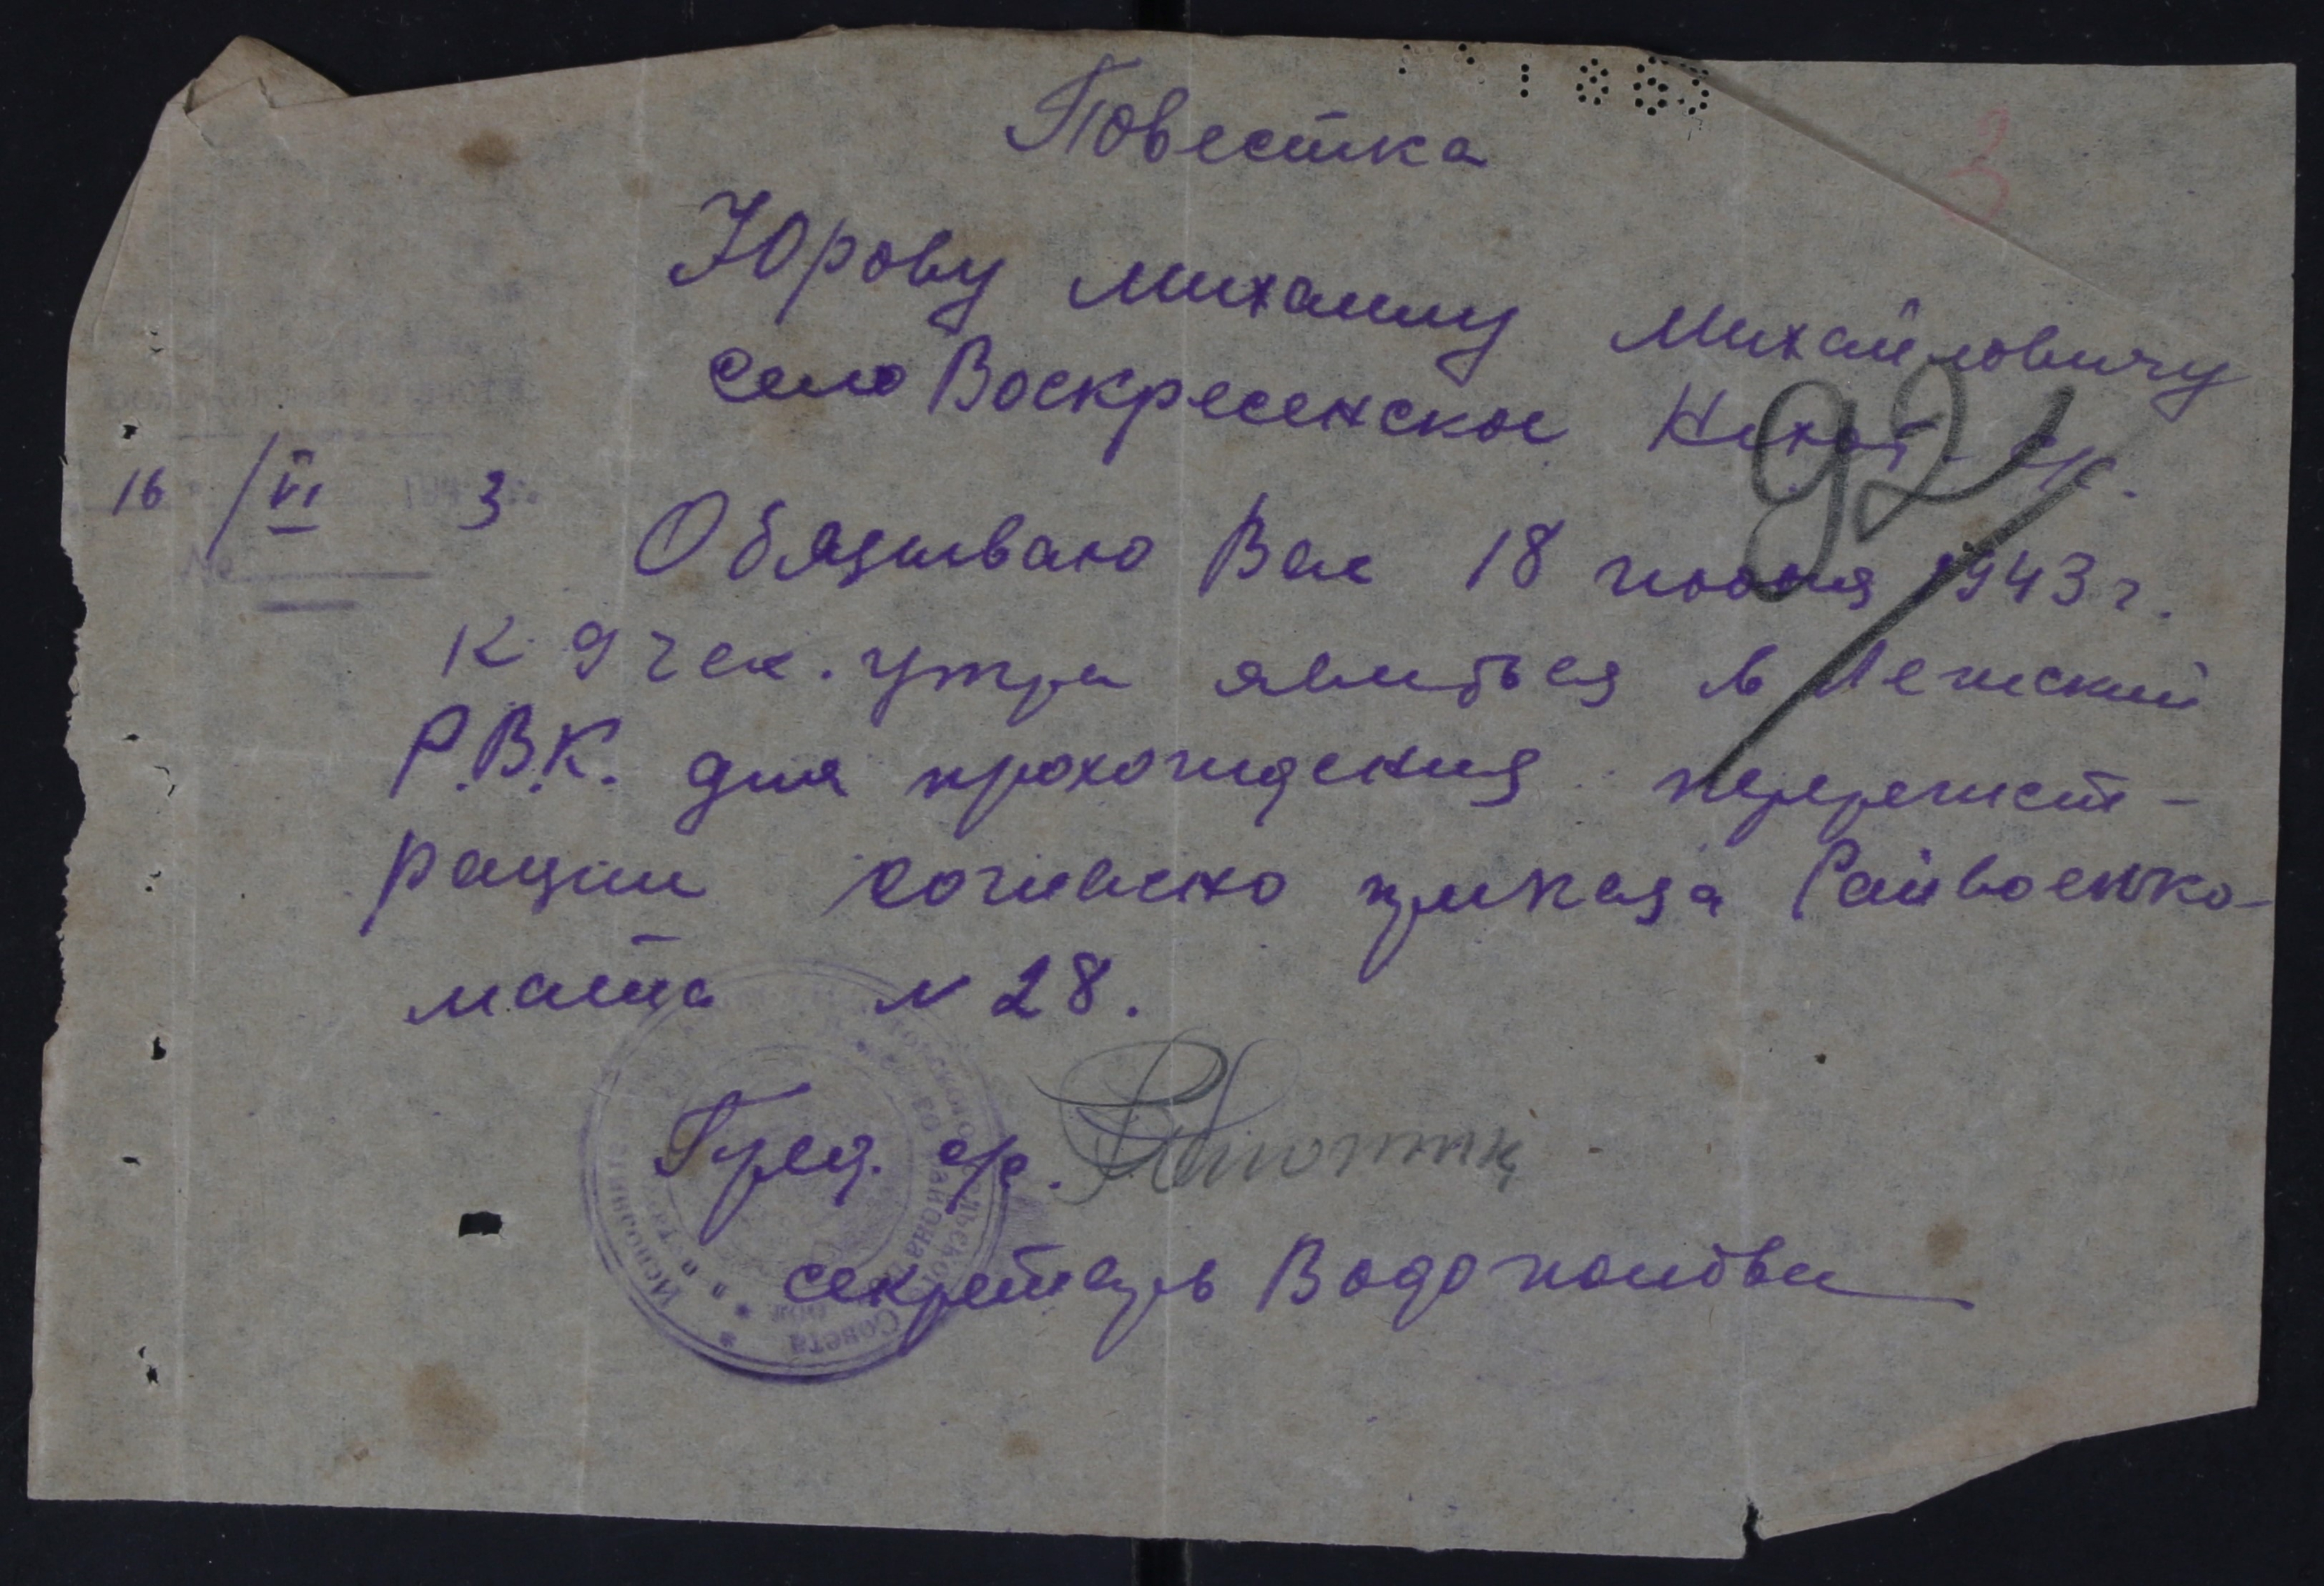 Повестка
Юрову Михаилу Михайловичу
село Воскресенское
16/VI 3
Обязываю Вас 18 июня 1943 г.
к 9 час. утра явиться в Лежский
Р.В.К. для прохождения перерегист-
рации согласно приказа Райвоенко-
мата N 28.
Пред. с/с.
секретарь Водопьянова
92
3
Совета
района